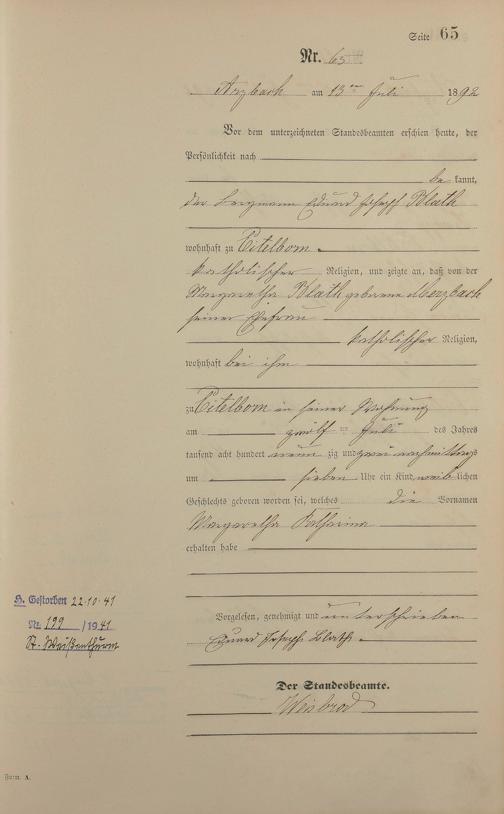 Seite 65
Nr. 65
Arzbach am 13ten Juli 1892
Vor dem unterzeichneten Standesbeamten erschien heute, der
Persönlichkeit nach
be kannt,
der Bergmann Eduard Joseph Blath
wohnhaft zu Eitelborn
katholischer Religion, und zeigte an, daß von der
Margaretha Blath geborene Merzbach
seiner Ehefrau
katholischer Religion,
wohnhaft bei ihm
zu Eitelborn in seiner Wohnung
am zwölf ten Juli des Jahres
tausend acht hundert neun zig und zwei nachmittags
um sieben Uhr ein Kind weib lichen
Geschlechts geboren worden sei, welches die Vornamen
Margaretha Katharina
erhalten habe
Vorgelesen, genehmigt und unterschrieben
Eduard Joseph Blath
Der Standesbeamte.
Weisbrod
H. Gestorben 22.10.41
Nr. 199 /1941
St. Weißenthurm
Form. A.